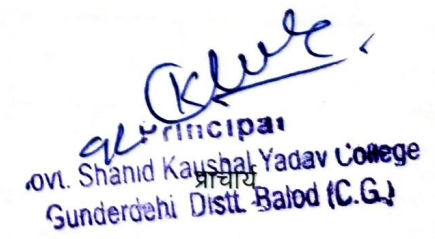 Principal
Govt. Shahid Kaushal Yadav College
प्राचार्य
Gunderdehi Distt. Balod (C.G.)